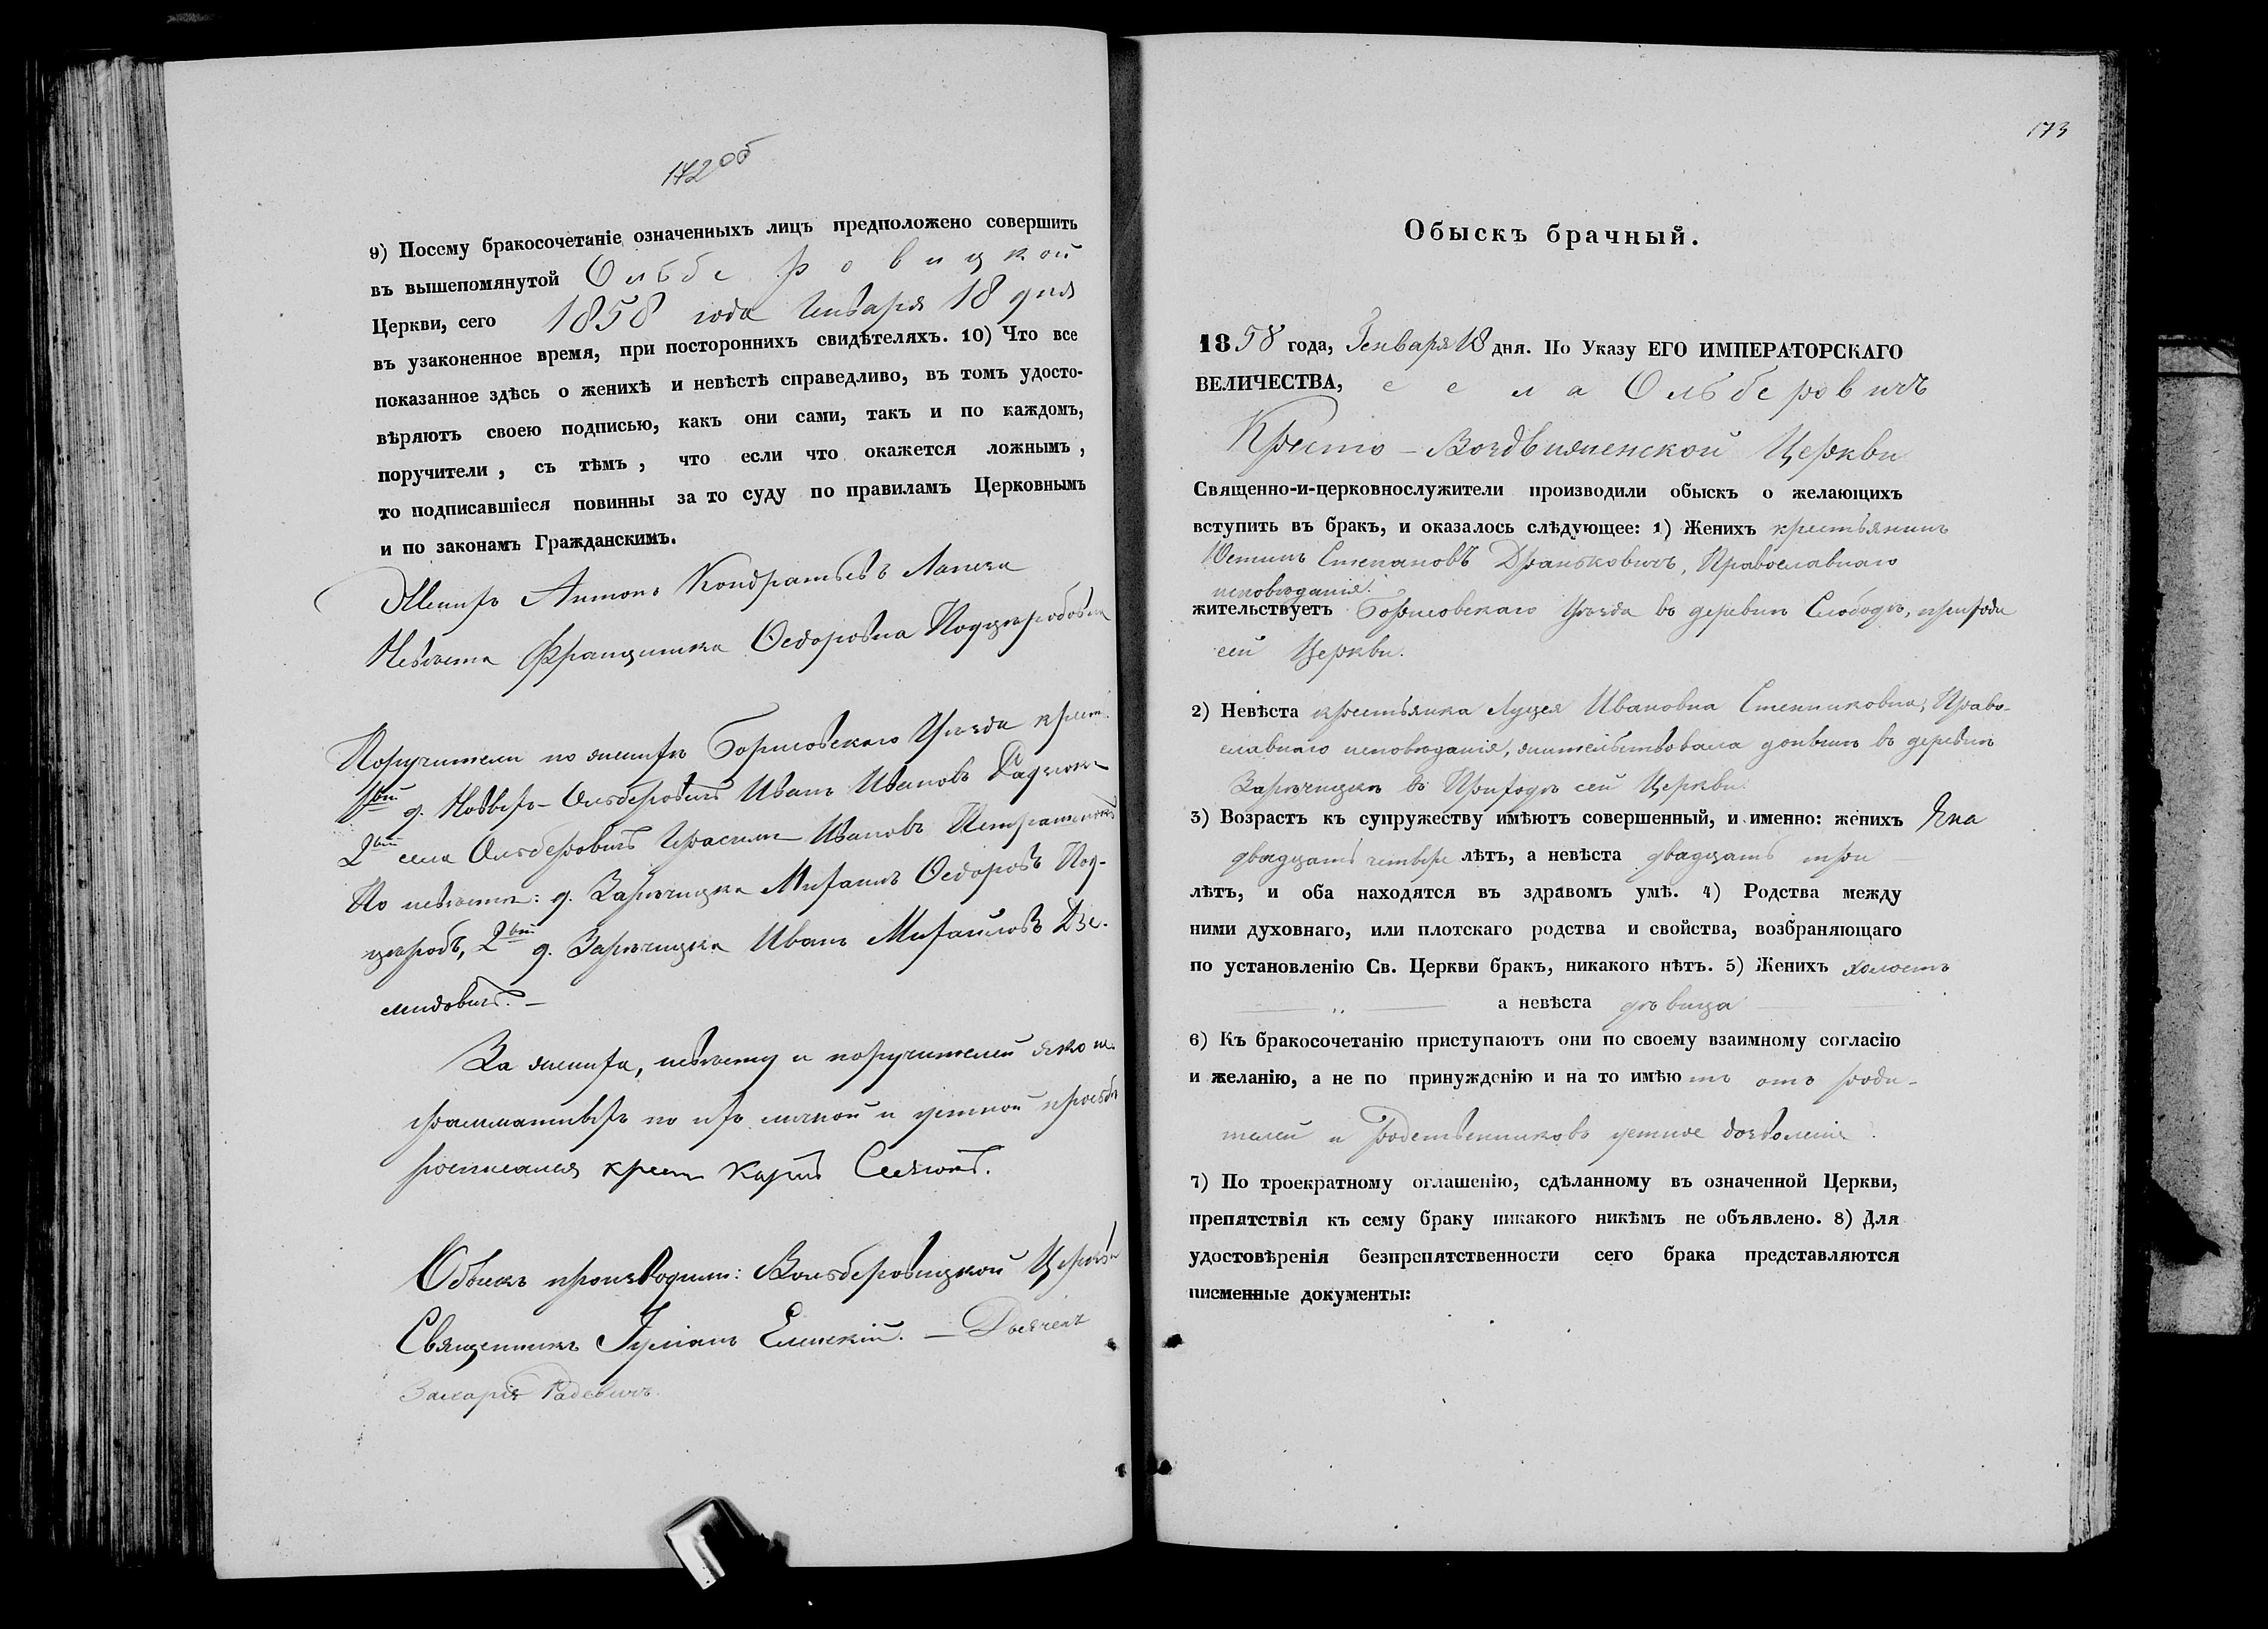 172 об
9) Посему бракосочетаніе означенныхъ лицъ предположено совершить
въ вышепомянутой Ольберовицкой
Церкви, сего 1858 года Января 18 дня
въ узаконенное время, при постороннихъ свидѣтеляхъ. 10) Что все
показанное здѣсь о женихѣ и невѣстѣ справедливо, въ томъ удосто-
вѣряютъ своею подписью, какъ они сами, такъ и по каждомъ,
поручители, съ тѣмъ, что если что окажется ложнымъ,
то подписавшіеся повинны за то суду по правиламъ Церковнымъ
и по законамъ Гражданскимъ.
Женихъ Антонъ Кондратьевъ Лапека
Невѣста Францишка Ѳедорова
Поручители по женихѣ Борисовскаго Уѣзда крест.
1вый д. Ольберовичъ Иванъ Ивановъ
2ой села Ольберовичъ Герасимъ Ивановъ
По невѣстѣ: д. Зарѣчицка Михаилъ Ѳедоровъ Под-
царобъ, 2ой д. Зарѣчицка Иванъ Михайловъ Дзе-
мидовичъ. —
За жениха, невѣсту и поручителей яко не-
грамматныхъ по ихъ личной и устной просьбѣ
росписался крест. Карпъ
Обыскъ производили: Вольберовицкой Церкви
Священникъ Іуліанъ Еленскій. — Дьячекъ
Захарія Радевичъ.
173
Обыскъ брачный.
1858 года, Генваря 18 дня. По Указу ЕГО ИМПЕРАТОРСКАГО
ВЕЛИЧЕСТВА, села Ольберовичъ
Кресто-Воздвиженской Церкви
Священно-и-церковнослужители производили обыскъ о желающихъ
вступить въ бракъ, и оказалось слѣдующее: 1) Женихъ крестьянинъ
Юстинъ Степановъ Драньковичъ, Православнаго
исповѣданія.
жительствуетъ Борисовскаго Уѣзда въ деревнѣ Слободѣ, прихода
сей Церкви.
2) Невѣста крестьянка Луцея Ивановна Степниковна, Право-
славнаго исповѣданія, жительствовала донынѣ въ деревнѣ
Зарѣчицкѣ въ Приходѣ сей Церкви.
3) Возрастъ къ супружеству имѣютъ совершенный, и именно: женихъ
двадцать четыре лѣтъ, а невѣста двадцать три
лѣтъ, и оба находятся въ здравомъ умѣ. 4) Родства между
ними духовнаго, или плотскаго родства и свойства, возбраняющаго
по установленію Св. Церкви бракъ, никакого нѣтъ. 5) Женихъ холостъ
а невѣста дѣвица
6) Къ бракосочетанію приступаютъ они по своему взаимному согласію
и желанію, а не по принужденію и на то имѣютъ отъ роди-
телей и родственниковъ устное дозволеніе.
7) По троекратному оглашенію, сдѣланному въ означенной Церкви,
препятствія къ сему браку никакого никѣмъ не объявлено. 8) Для
удостовѣренія безпрепятственности сего брака представляются
писменные документы: